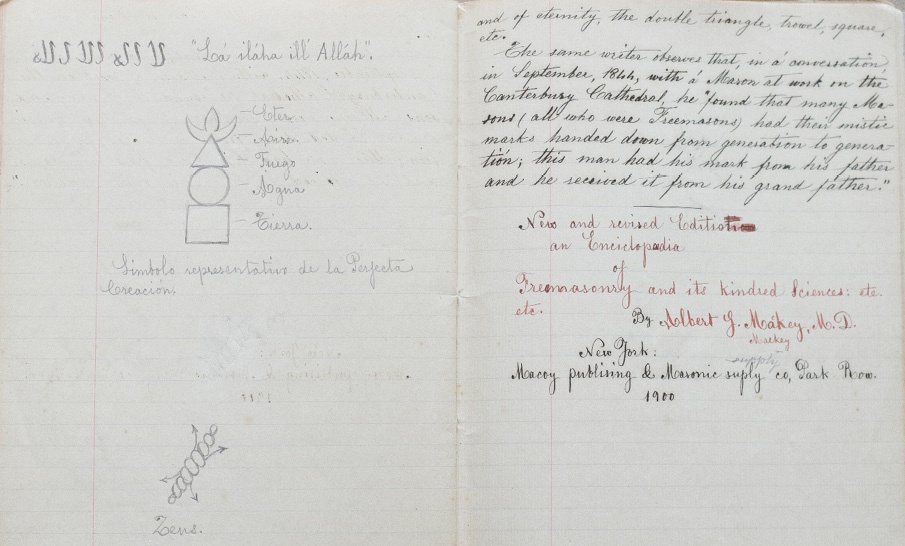 "Lá iláha ill' Alláh".
Eter
Aire
Fuego
Agua
Tierra.
Simbolo representativo de la Perfecta
Creación.
Zeus.
and of eternity, the double triangle, trowel, square,
etc.
The same writer observes that, in a conversation,
in September, 1844, with a Mason at work on the
Canterbury Cathedral, he "found that many Ma-
sons (all who were Freemasons) had their mistic
marks handed down from generation to genera-
tion; this man had his mark from his father
and he received it from his grand father."
New and revised Edition
an Enciclopædia
of
Freemasonry and its kindred Sciences: etc.
etc.
By Albert G. Mákey, M.D.
Mackey
New York:
supply
Macoy publising & Masonic suply co, Park Row.
1900